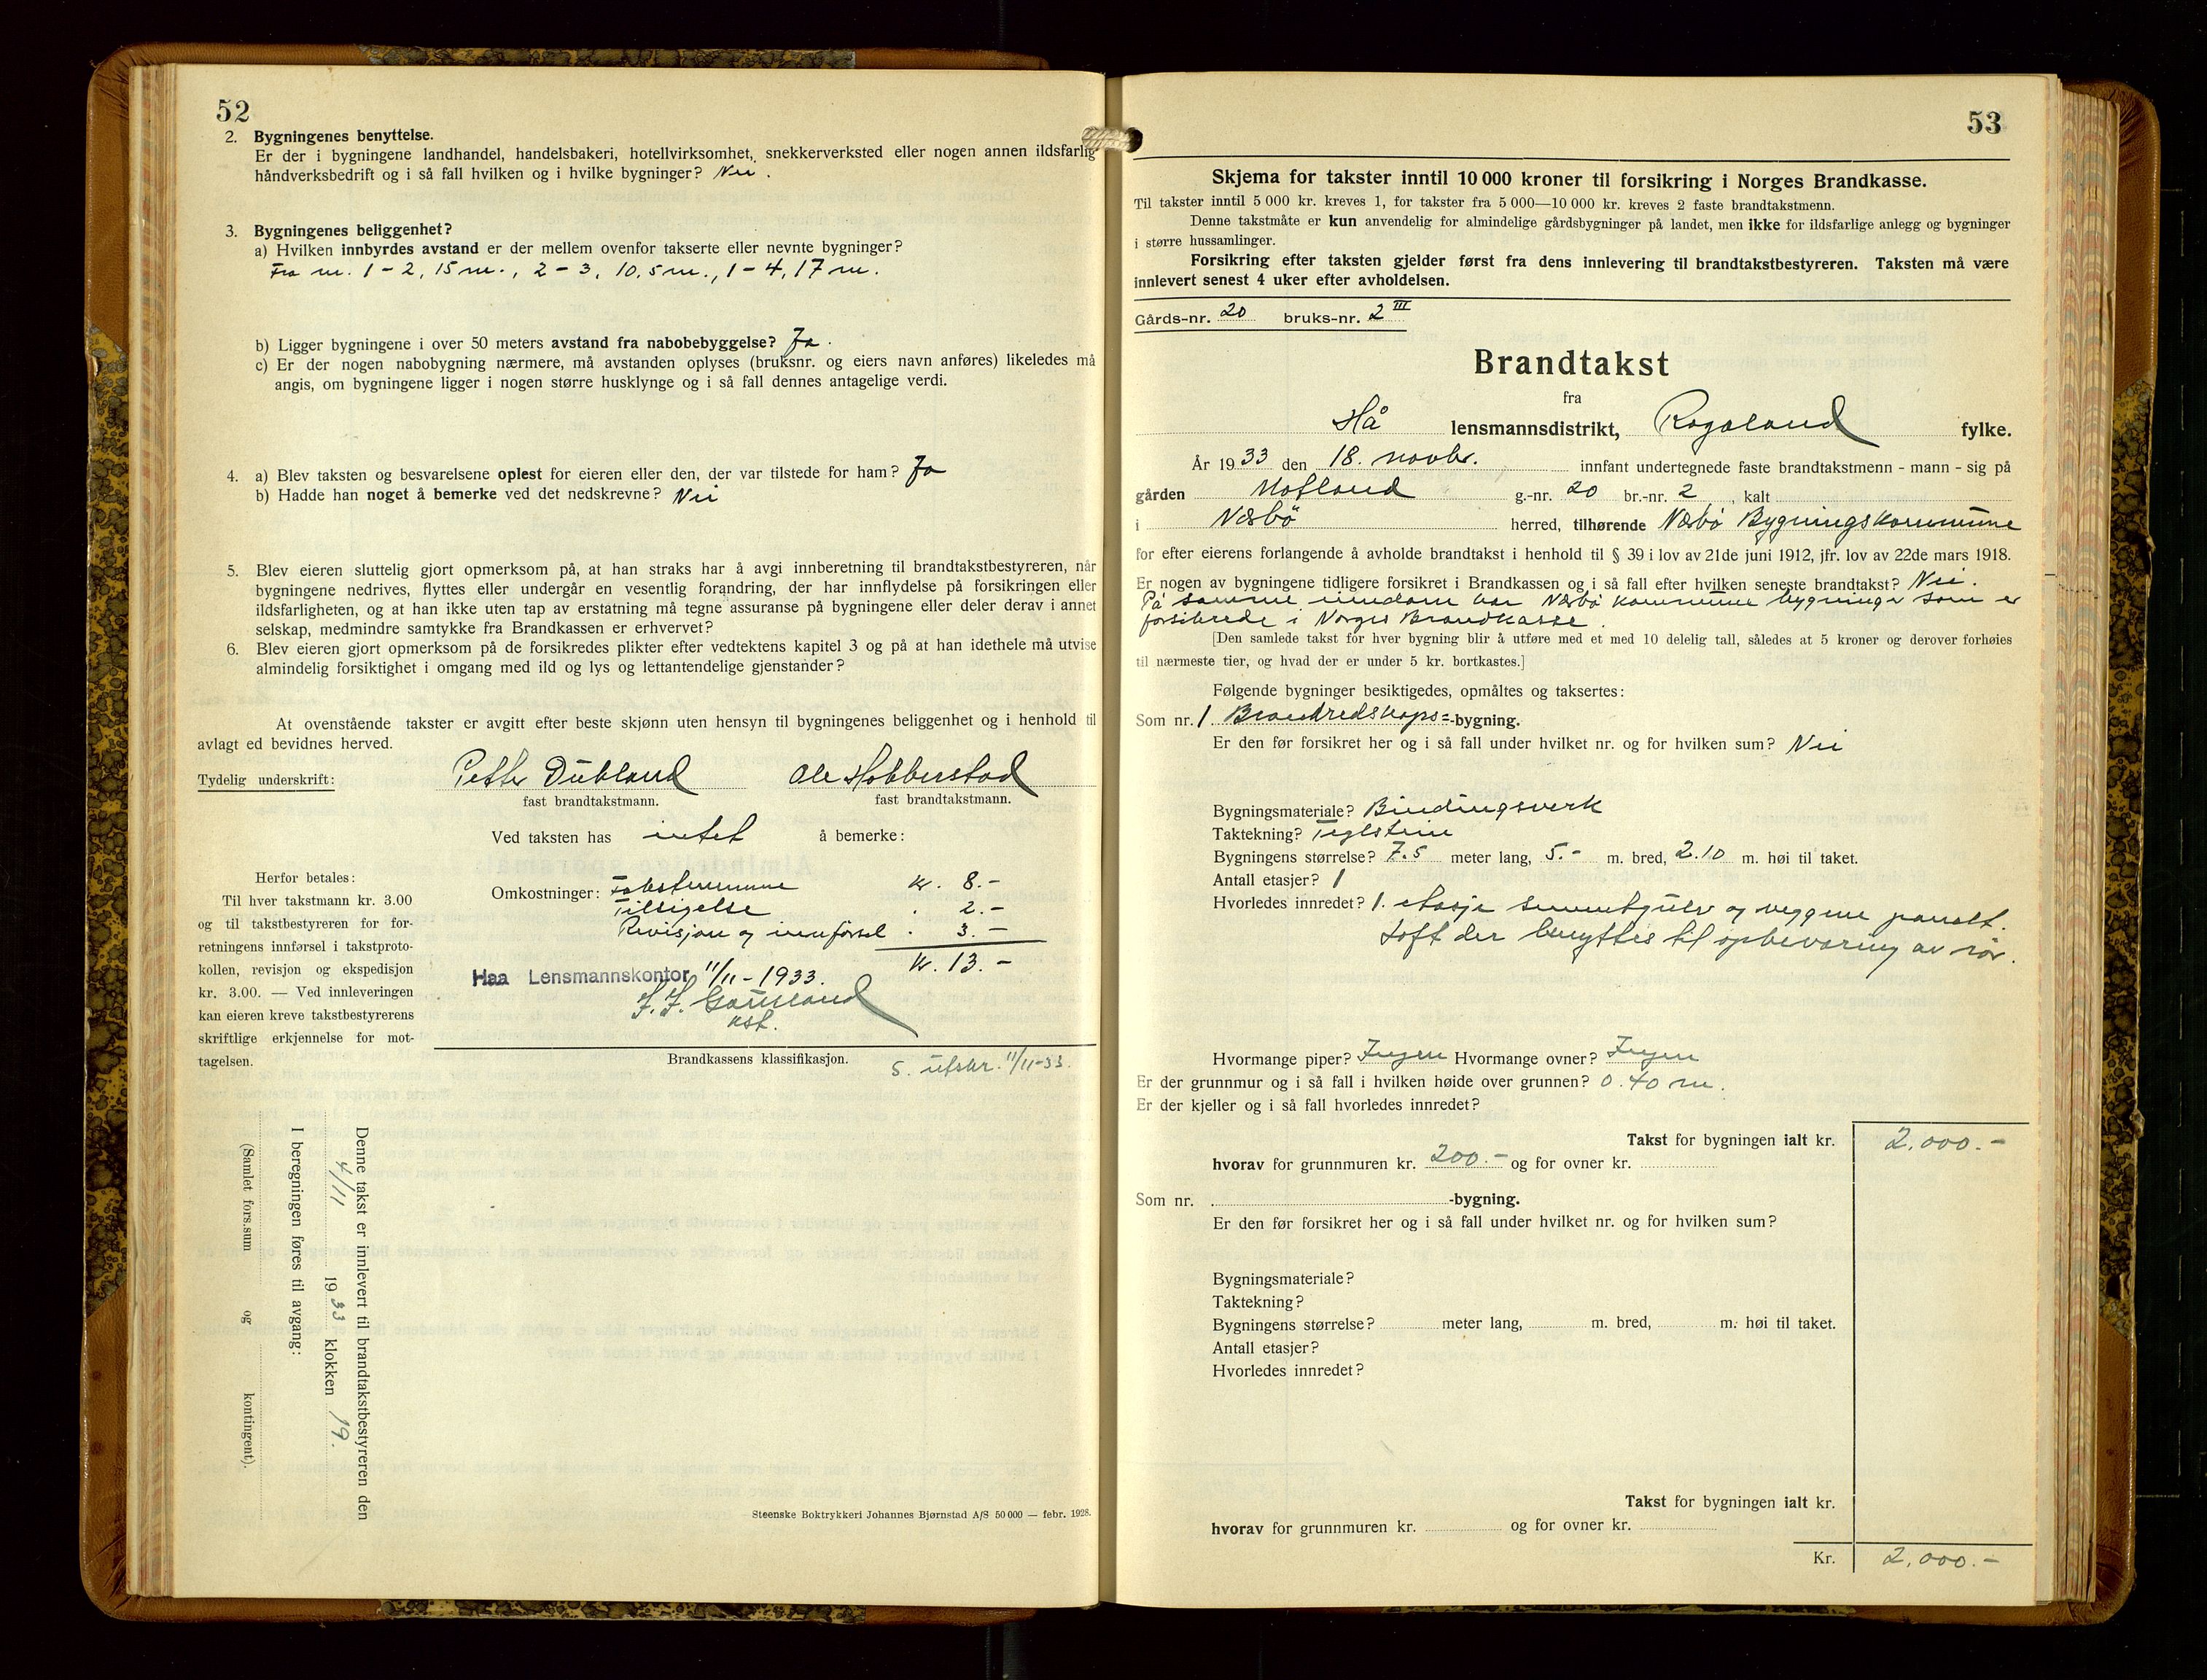 52
2. Bygningenes benyttelse.
Er der i bygningene landhandel, handelsbakeri, hotellvirksomhet, snekkerverksted eller nogen annen ildsfarlig
håndverksbedrift og i så fall hvilken og i hvilke bygninger? Nei .
3. Bygningenes beliggenhet?
a) Hvilken innbyrdes avstand er der mellem ovenfor takserte eller nevnte bygninger?
Fra nr. 1 - 2, 15 m., 2 - 3, 10,5 m., 1 - 4, 17 m.
b) Ligger bygningene i over 50 meters avstand fra nabobebyggelse? Ja .
c) Er der nogen nabobygning nærmere, må avstanden oplyses (bruksnr. og eiers navn anføres) likeledes må
angis, om bygningene ligger i nogen større husklynge og i så fall dennes antagelige verdi.
4. a) Blev taksten og besvarelsene oplest for eieren eller den, der var tilstede for ham? Ja
b) Hadde han noget å bemerke ved det nedskrevne? Nei
5. Blev eieren sluttelig gjort opmerksom på, at han straks har å avgi innberetning til brandtakstbestyreren, når
bygningene nedrives, flyttes eller undergår en vesentlig forandring, der har innflydelse på forsikringen eller
ildsfarligheten, og at han ikke uten tap av erstatning må tegne assuranse på bygningene eller deler derav i annet
selskap, medmindre samtykke fra Brandkassen er erhvervet?
6. Blev eieren gjort opmerksom på de forsikredes plikter efter vedtektens kapitel 3 og på at han idethele må utvise
almindelig forsiktighet i omgang med ild og lys og lettantendelige gjenstander?
At ovenstående takster er avgitt efter beste skjønn uten hensyn til bygningenes beliggenhet og i henhold til
avlagt ed bevidnes herved.
Tydelig underskrift: Petter Dubland Ole Hobberstad
fast brandtakstmann. fast brandtakstmann.
Ved taksten has intet å bemerke:
Herfor betales:
Til hver takstmann kr. 3.00
og til takstbestyreren for for-
retningens innførsel i takstproto-
kollen, revisjon og ekspedisjon
kr. 3.00. — Ved innleveringen
kan eieren kreve takstbestyrerens
skriftlige erkjennelse for mot-
tagelsen.
Omkostninger: Takstmennene kr. 8.-
Tilsigelse . 2.-
Revisjon og innførsel . 3.-
kr. 13.-
Haa Lensmannskontor 11/11-1933.
kst.
Brandkassens klassifikasjon. S. utskr. 11/11-33.
Denne takst er innlevert til brandtakstbestyreren den
4/11 1933 klokken 19.
I beregningen føres til avgang:
(Samlet fors.sum og kontingent).
Steenske Boktrykkeri Johannes Bjørnstad A/S 50 000 — febr. 1928.
53
Skjema for takster inntil 10 000 kroner til forsikring i Norges Brandkasse.
Til takster inntil 5 000 kr. kreves 1, for takster fra 5 000—10 000 kr. kreves 2 faste brandtakstmenn.
Denne takstmåte er kun anvendelig for almindelige gårdsbygninger på landet, men ikke for ildsfarlige anlegg og bygninger
i større hussamlinger.
Forsikring efter taksten gjelder først fra dens innlevering til brandtakstbestyreren. Taksten må være
innlevert senest 4 uker efter avholdelsen.
Gårds-nr. 20 bruks-nr. 2 III
Brandtakst
fra
Hå lensmannsdistrikt, Rogaland fylke.
År 1933 den 18. novbr. innfant undertegnede faste brandtakstmenn - mann - sig på
gården Hofland g.-nr. 20 br.-nr. 2, kalt
i Nærbö herred, tilhørende Nærbö Bygningskommune
for efter eierens forlangende å avholde brandtakst i henhold til § 39 i lov av 21de juni 1912, jfr. lov av 22de mars 1918.
Er nogen av bygningene tidligere forsikret i Brandkassen og i så fall efter hvilken seneste brandtakst? Nei.
På samme eiendom har Nærbö kommune bygninger som er
forsikrede i Norges Brandkasse.
[Den samlede takst for hver bygning blir å utføre med et med 10 delelig tall, således at 5 kroner og derover forhøies
til nærmeste tier, og hvad der er under 5 kr. bortkastes.]
Følgende bygninger besiktigedes, opmåltes og taksertes:
Som nr. 1 Brandredskaps-bygning.
Er den før forsikret her og i så fall under hvilket nr. og for hvilken sum? Nei
Bygningsmateriale? Bindingsverk
Taktekning? Teglstein
Bygningens størrelse? 7.5 meter lang, 5.- m. bred, 2.10 m. høi til taket.
Antall etasjer? 1
Hvorledes innredet? 1. etasje sementgulv og veggene panelt.
Loft der benyttes til opbevaring av rör.
Hvormange piper? Ingen Hvormange ovner? Ingen
Er der grunnmur og i så fall i hvilken høide over grunnen? 0.40 m.
Er der kjeller og i så fall hvorledes innredet?
Takst for bygningen ialt kr. 2.000.-
hvorav for grunnmuren kr. 200.- og for ovner kr.
Som nr. -bygning.
Er den før forsikret her og i så fall under hvilket nr. og for hvilken sum?
Bygningsmateriale?
Taktekning?
Bygningens størrelse? meter lang, m. bred, m. høi til taket.
Antall etasjer?
Hvorledes innredet?
Takst for bygningen ialt kr.
hvorav for grunnmuren kr. og for ovner kr.
Kr. 2.000.-